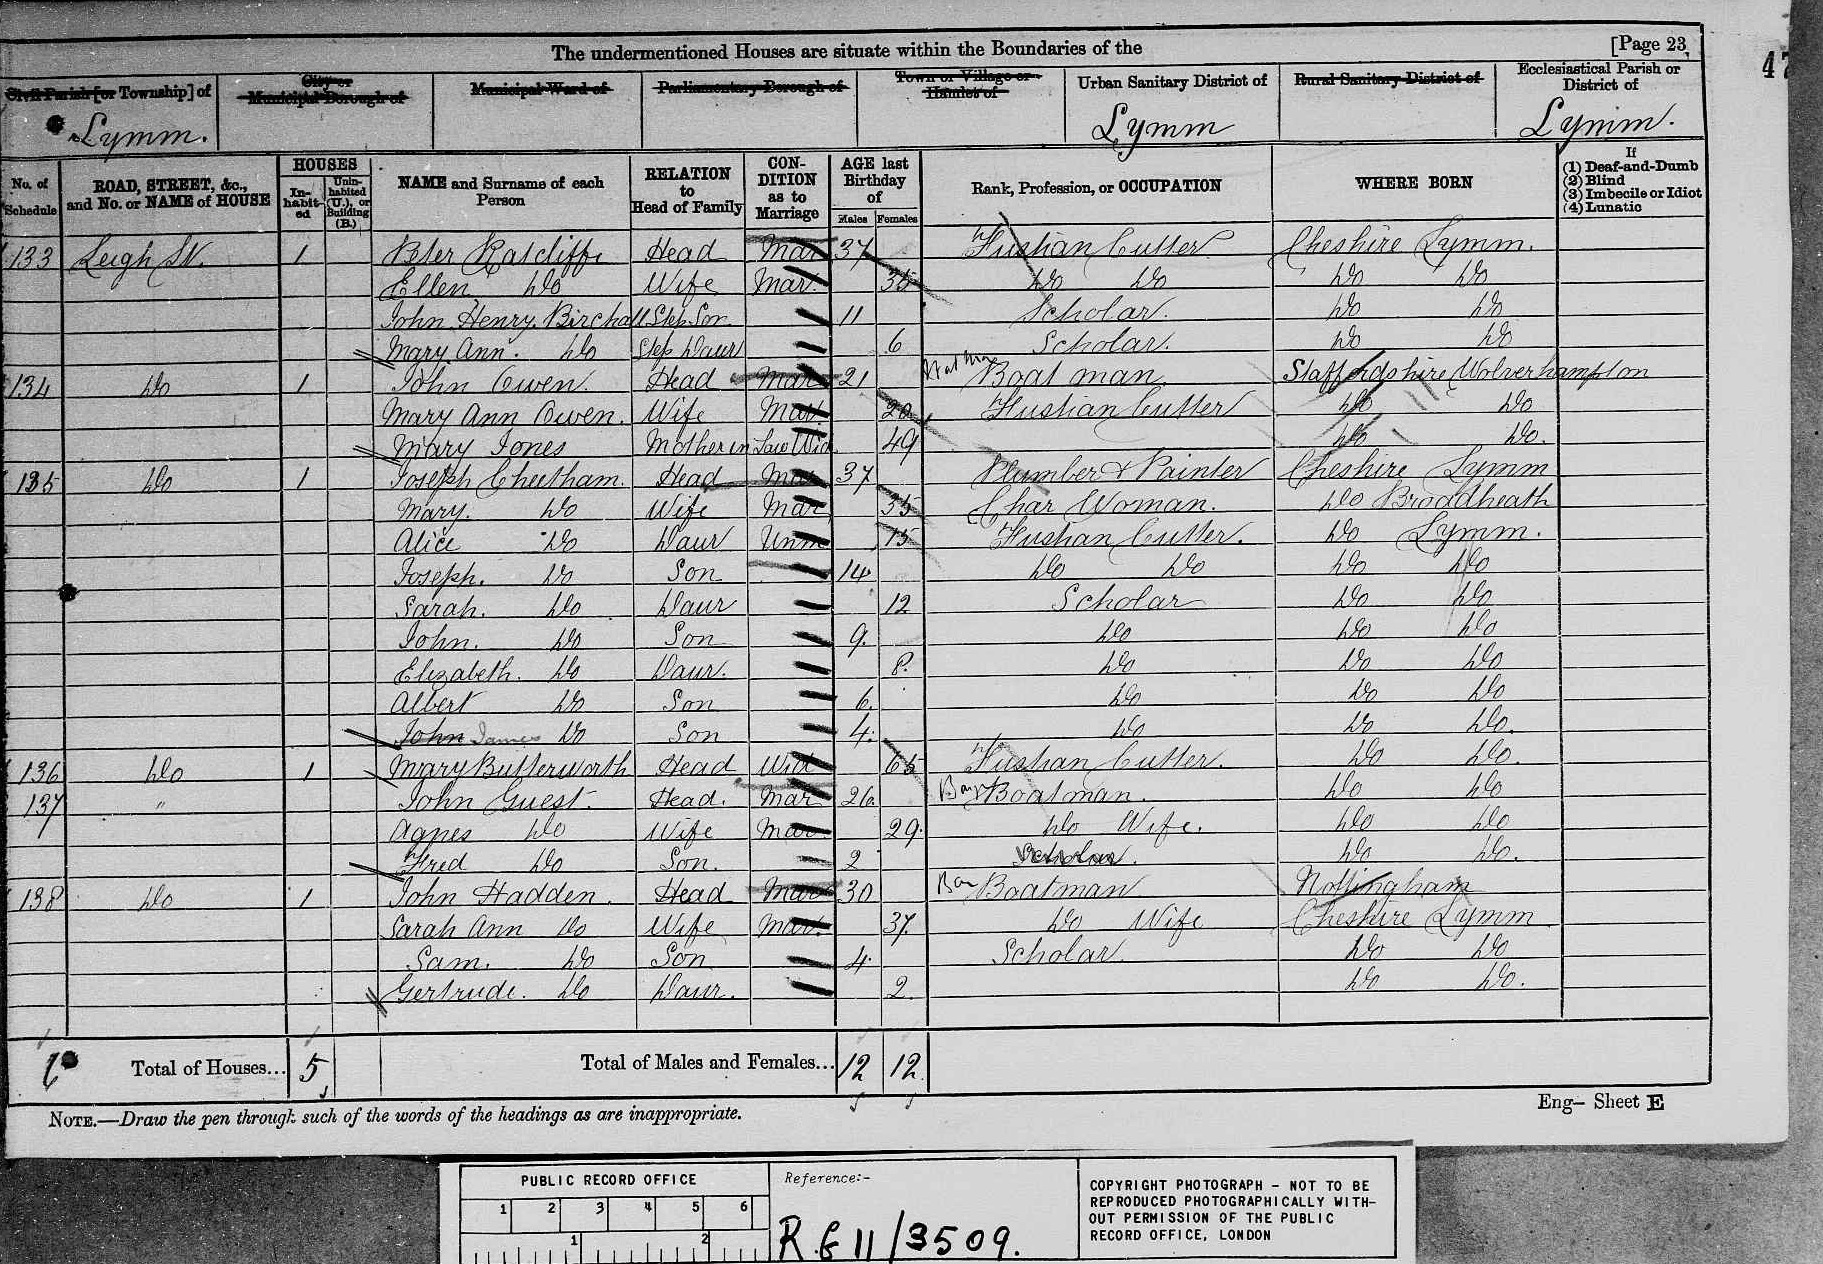 The undermentioned Houses are situate within the Boundaries of the [Page 23
Civil Parish [or Township] of
City or Municipal Borough of
Municipal Ward of
Parliamentary Borough of
Town or Village or Hamlet of
Urban Sanitary District of
Rural Sanitary District of
Ecclesiastical Parish or District of
Lymm. Lymm Lymm.
No. of Schedule
ROAD, STREET, &c., and No. or NAME of HOUSE
HOUSES
In-habit-ed
Unin-habited (U.), or Building (B.)
NAME and Surname of each Person
RELATION to Head of Family
CON-DITION as to Marriage
AGE last Birthday of
Males Females
Rank, Profession, or OCCUPATION
WHERE BORN
If
(1) Deaf-and-Dumb
(2) Blind
(3) Imbecile or Idiot
(4) Lunatic
133 Leigh St. 1 Peter Ratcliffe Head Mar 37 Fustian Cutter Cheshire Lymm.
Ellen Do Wife Mar. 35 Do Do Do Do
John Henry Birchall Step Son 11 Scholar. Do Do
Mary Ann. Do Step Daur 6 Scholar. Do Do
134 Do 1 John Owen Head Mar 21 Boat man Staffordshire Wolverhampton
Mary Ann Owen. Wife Mar. 20 Fustian Cutter Do Do
Mary Jones Mother in Law Wid. 49 Do Do.
135 Do 1 Joseph Cheetham. Head Mar 37 Plumber & Painter Cheshire Lymm
Mary. Do Wife Mar 35 Char Woman. Do Broadheath
Alice Do Daur Unm 15 Fustian Cutter. Do Lymm.
Joseph. Do Son 14 Do Do Do Do
Sarah. Do Daur 12 Scholar Do Do
John. Do Son 9. Do Do Do
Elizabeth. Do Daur. 8. Do Do Do
Albert Do Son 6. Do Do Do
John James Do Son 4. Do Do Do.
136 Do 1 Mary Butterworth Head Wid 65 Fustian Cutter. Do Do.
137 " John Guest. Head. Mar 26. Barge Boatman. Do Do
Agnes Do Wife Mar 29. Do Wife. Do Do
Fred Do Son. 2 Scholar. Do Do.
138 Do 1 John Hadden. Head Mar 30 Bar Boatman Nottingham
Sarah Ann Do Wife Mar. 37. Do Wife Cheshire Lymm
Sam. Do Son 4. Scholar. Do Do
Gertrude. Do Daur. 2. Do Do.
Total of Houses... 5 Total of Males and Females... 12 12
NOTE.—Draw the pen through such of the words of the headings as are inappropriate.
Eng– Sheet E
PUBLIC RECORD OFFICE
1 2 3 4 5 6
1 2
Reference:-
R.G 11/3509.
COPYRIGHT PHOTOGRAPH - NOT TO BE
REPRODUCED PHOTOGRAPHICALLY WITH-
OUT PERMISSION OF THE PUBLIC
RECORD OFFICE, LONDON